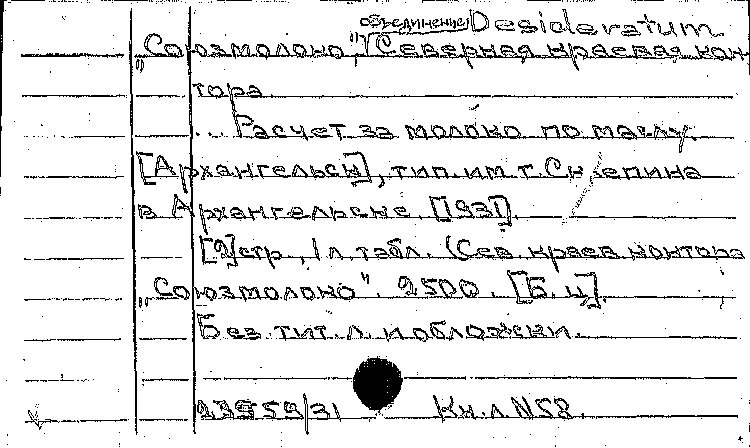 объединение Desideratum
„Союзмолоко", Северная краевая кон-
тора.
... Расчет за молоко по маслу.
[Архангельск], тип. им. т. Склепина
в Архангельске. [1931].
[2]стр., 1 л. табл. (Сев. краев. контора
„Союзмолоко". 2500. [Б.ц].
Без тит. л. и обложки.
23959/31 Кн.л. N58.